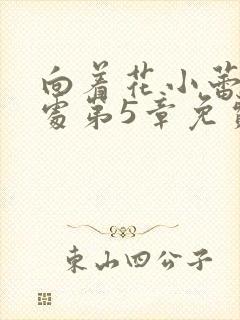 向着花小蕾
处第5章免费
东山四公子